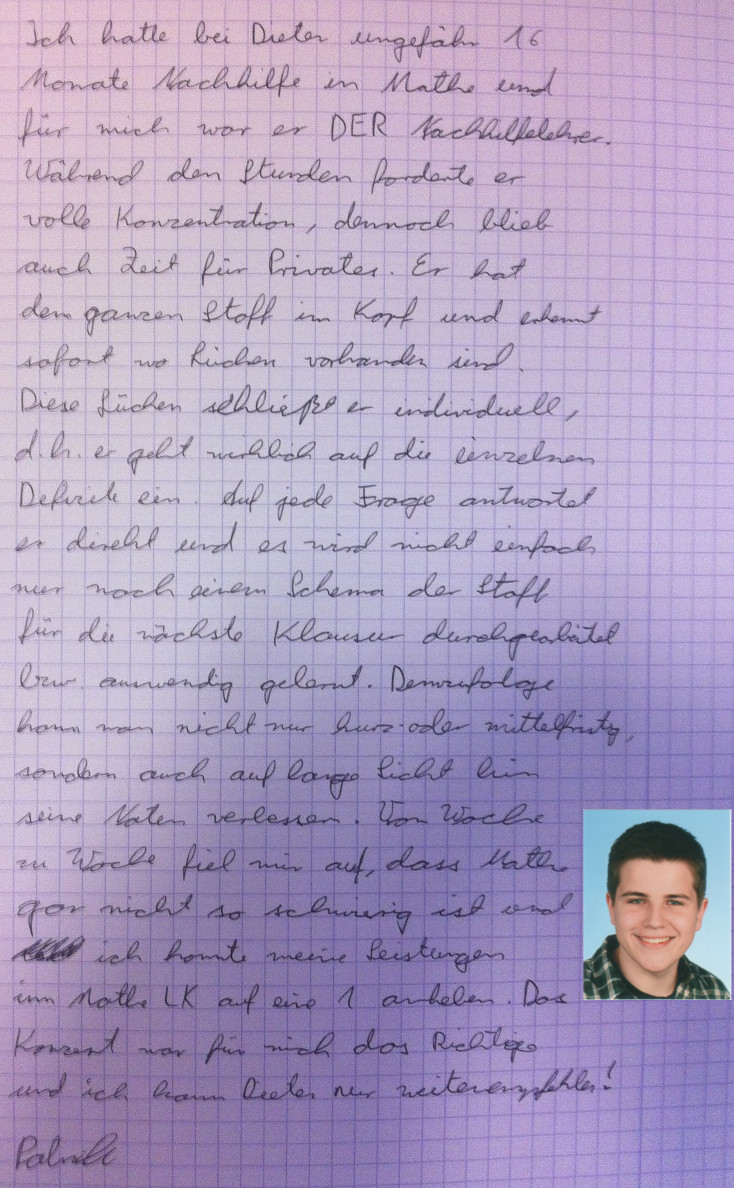 Ich hatte bei Dieter ungefähr 16
Monate Nachhilfe in Mathe und
für mich war er DER Nachhilfelehrer.
Während den Stunden forderte er
volle Konzentration, dennoch blieb
auch Zeit für Privates. Er hat
den ganzen Stoff im Kopf und erkennt
sofort wo Lücken vorhanden sind.
Diese Lücken schließt er individuell,
d.h. er geht wirklich auf die einzelnen
Defizite ein. Auf jede Frage antwortet
er direkt und es wird nicht einfach
nur nach einem Schema der Stoff
für die nächste Klausur durchgearbeitet
bzw. auswendig gelernt. Demzufolge
kann man nicht nur kurz- oder mittelfristig,
sondern auch auf lange Sicht hin
seine Noten verbessern. Von Woche
zu Woche fiel mir auf, dass Mathe
gar nicht so schwierig ist und
ich konnte meine Leistungen
im Mathe LK auf eine 1 anheben. Das
Konzept war für mich das Richtige
und ich kann Dieter nur weiterempfehlen!
Patrick